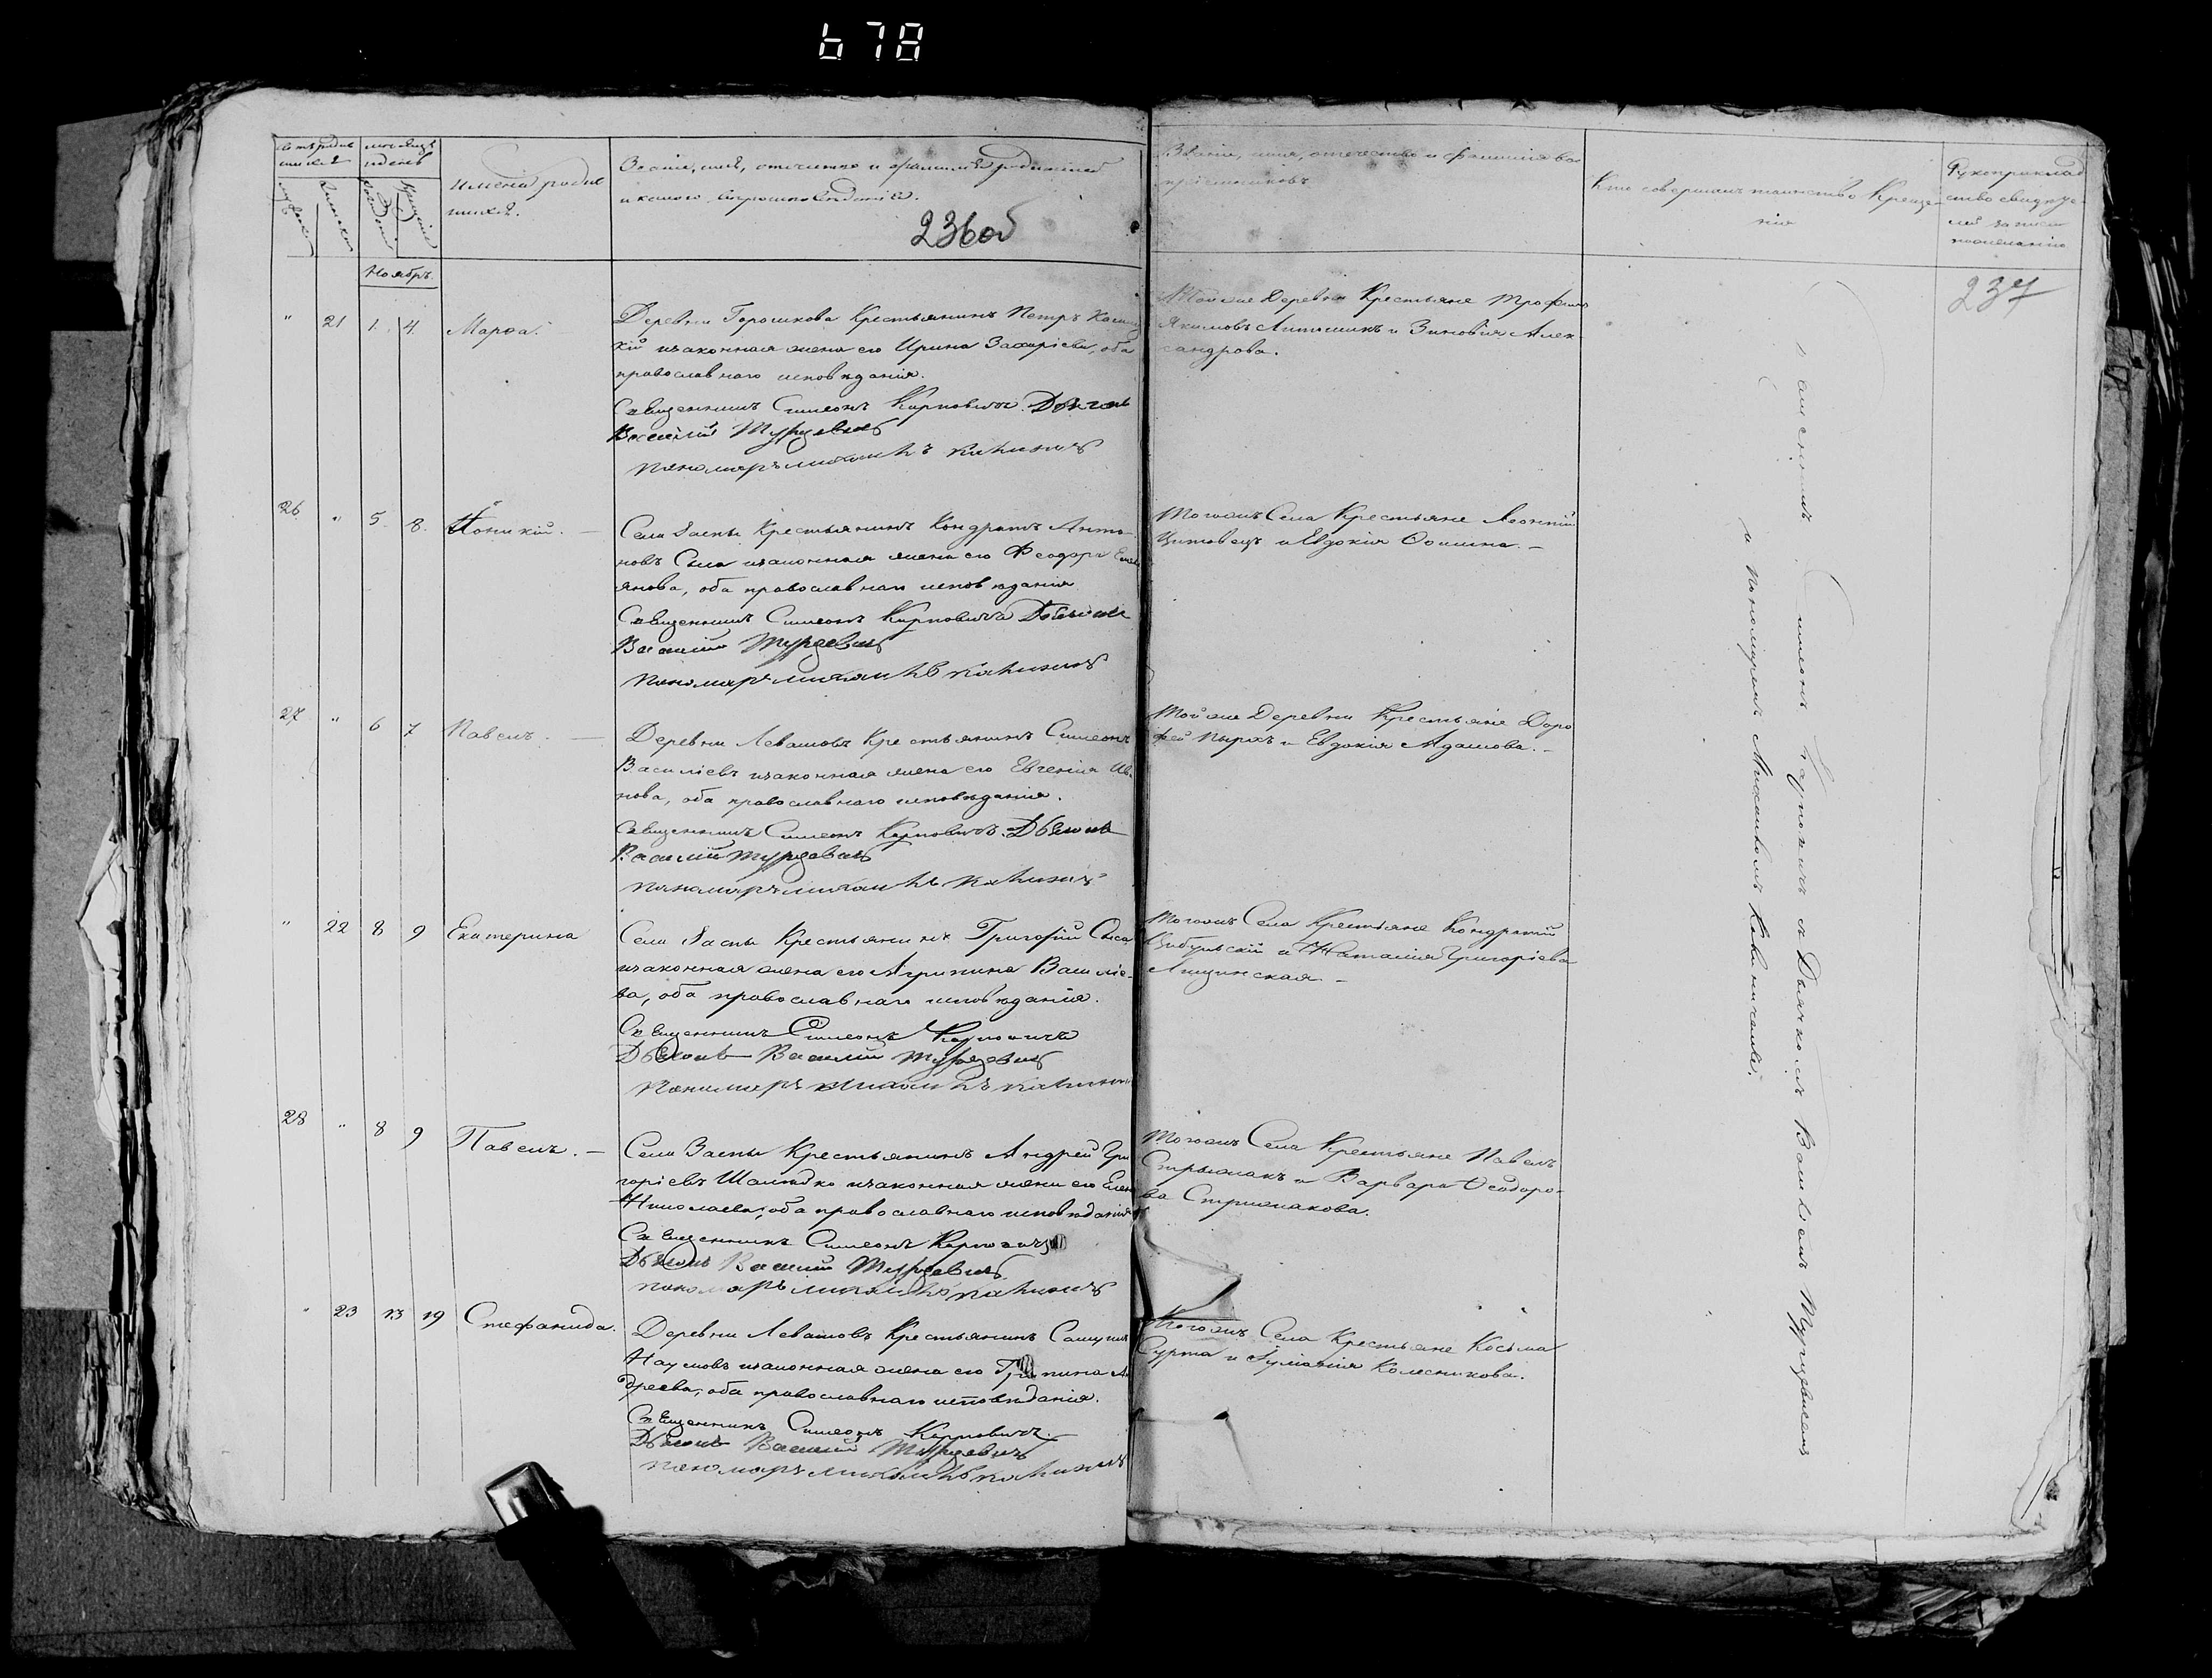 678
Счетъ родив
шихся
мѣсяцъ
и день
Имена родив
шихся.
Званіе, имя, отчество и фамилія родителей
и какого вѣроисповѣданія.
236об
Званіе, имя, отчество и фамилія во
пріемниковъ
Кто совершалъ таинство Креще
нія
Рукоприклад
ство свидѣте
лей записи
по желанію
237
Ноябрь.
" 21 1. 4. Марѳа.
Деревни Горошкова Крестьянинъ Петръ
кій и законная жена его Ирина Захаріева, оба
православнаго исповѣданія.
Священникъ Симеонъ Карповичъ. Дьячокъ
Василій Турцевичъ
пономарь михаилъ
Тойже Деревни Крестьяне Трофимъ
Якимовъ и Зиновія Алек
сандрова.
26 " 5. 8. Іоникій. —
Села Заспы Крестьянинъ Кондратъ Анто
новъ Сыса и законная жена его Феодора Емель
янова, оба православнаго исповѣданія
Священникъ Симеонъ Карповичъ Дьячокъ
Василій Турцевичъ
пономарь михаилъ
Тогожъ Села Крестьяне Леонтій
и Евдокія Фомина. —
27 " 6 7 Павелъ. —
Деревни Левашовъ Крестьянинъ Симеонъ
Василіевъ и законная жена его Евгенія Ива
нова, оба православнаго исповѣданія.
Священникъ Симеонъ Карповичъ. Дьячокъ
Василій Турцевичъ
пономарь михаилъ
Тойже Деревни Крестьяне Доро
фей Пырхъ и Евдокія Адамова. —
" 22 8 9 Екатерина
Села Заспы Крестьянинъ Григорій Сыса
и законная жена его Агрипина Василіе
ва, оба православнаго исповѣданія.
Священникъ Симеонъ Карповичъ
Дьячокъ Василій Турцевичъ
пономарь михаилъ
Тогожъ Села Крестьяне Кондратій
Цибульскій и Наталія Григоріева
Лищинская. —
28 " 8 9 Павелъ. —
Села Заспы Крестьянинъ Андрей Гри
горіевъ и законная жена его Елена
Николаева, оба православнаго исповѣданія
Священникъ Симеонъ Карповичъ
Дьячокъ Василій Турцевичъ
пономарь михаилъ
Тогожъ Села Крестьяне Павелъ
Стрижакъ и Варвара Ѳеодоро
ва Стрижакова.
" 23 13 19 Стефанида.
Деревни Левашовъ Крестьянинъ Самуилъ
Наумовъ и законная жена его Грипина Ан
дреева, оба православнаго исповѣданія.
Священникъ Симеонъ Карповичъ.
Дьячокъ Василій Турцевичъ
пономарь михаилъ
Тогожъ Села Крестьяне Косьма
Сурта и Колесникова.
Священникъ Симеонъ Карповичъ съ Дьячкомъ Василіемъ Турцевичемъ
и пономаремъ Михаиломъ